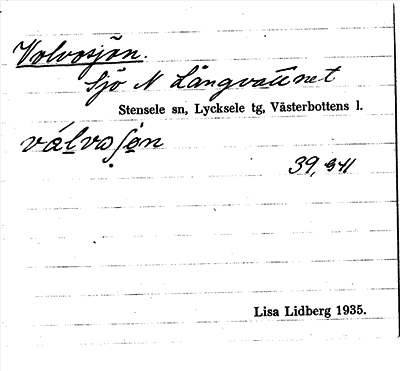 Volvosjön.
Sjö N Långvattnet
Stensele sn, Lycksele tg, Västerbottens l.
39, 341
Lisa Lidberg 1935.